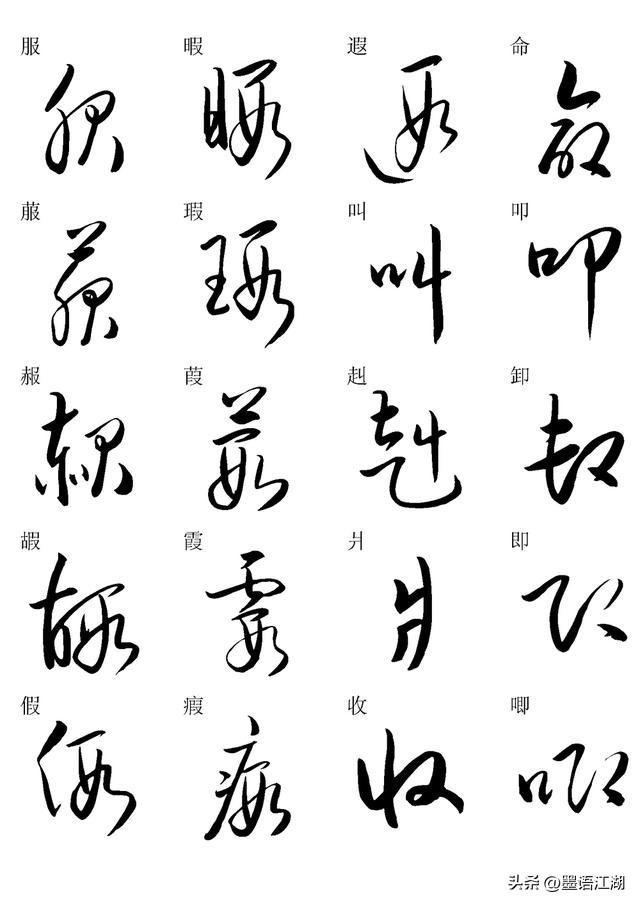 服 暇 遐 命
服 暇 遐 命
菔 瑕 叫 叩
菔 瑕 叫 叩
赧 葭 赳 卸
赧 葭 赳 卸
嘏 霞 爿 即
嘏 霞 爿 即
假 瘕 收 唧
假 瘕 收 唧
头条 @墨语江湖